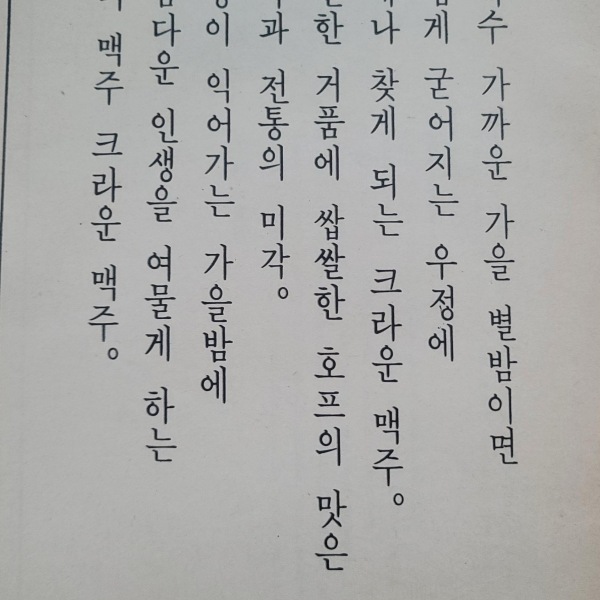 수 가까운 가을 별밤이면
게 굳어지는 우정에
나 찾게 되는 크라운 맥주。
한 거품에 쌉쌀한 호프의 맛은
과 전통의 미각。
이 익어가는 가을밤에
다운 인생을 여물게 하는
맥주 크라운 맥주。